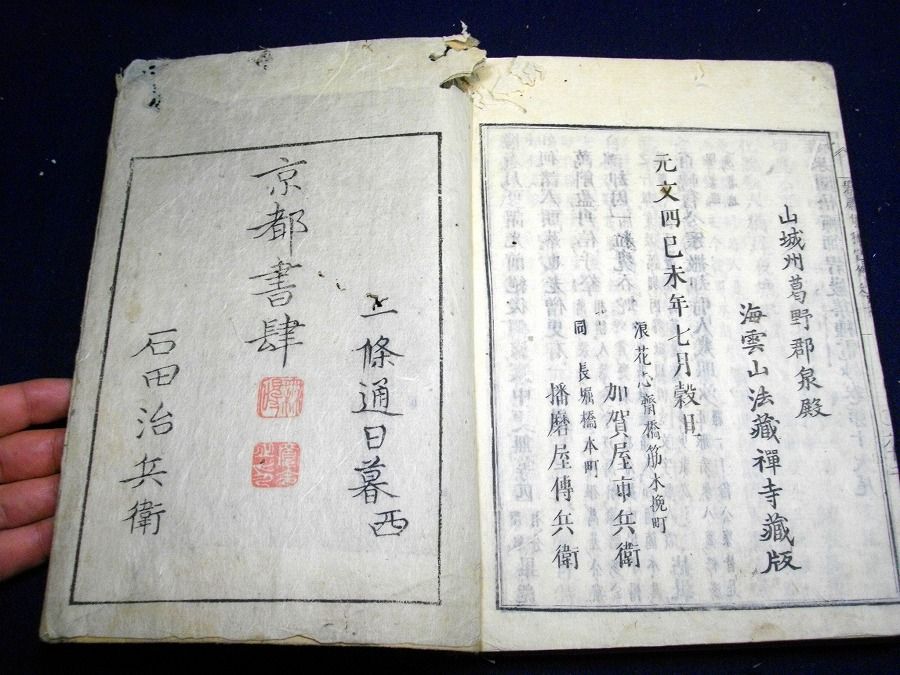 山城州葛野郡泉殿
海雲山法藏禪寺藏版
元文四己未年七月穀旦
浪花心齋橋筋木挽町
加賀屋市兵衛
同長堀橋本町
播磨屋傳兵衛
二條通日暮西
京都書肆
石田治兵衛